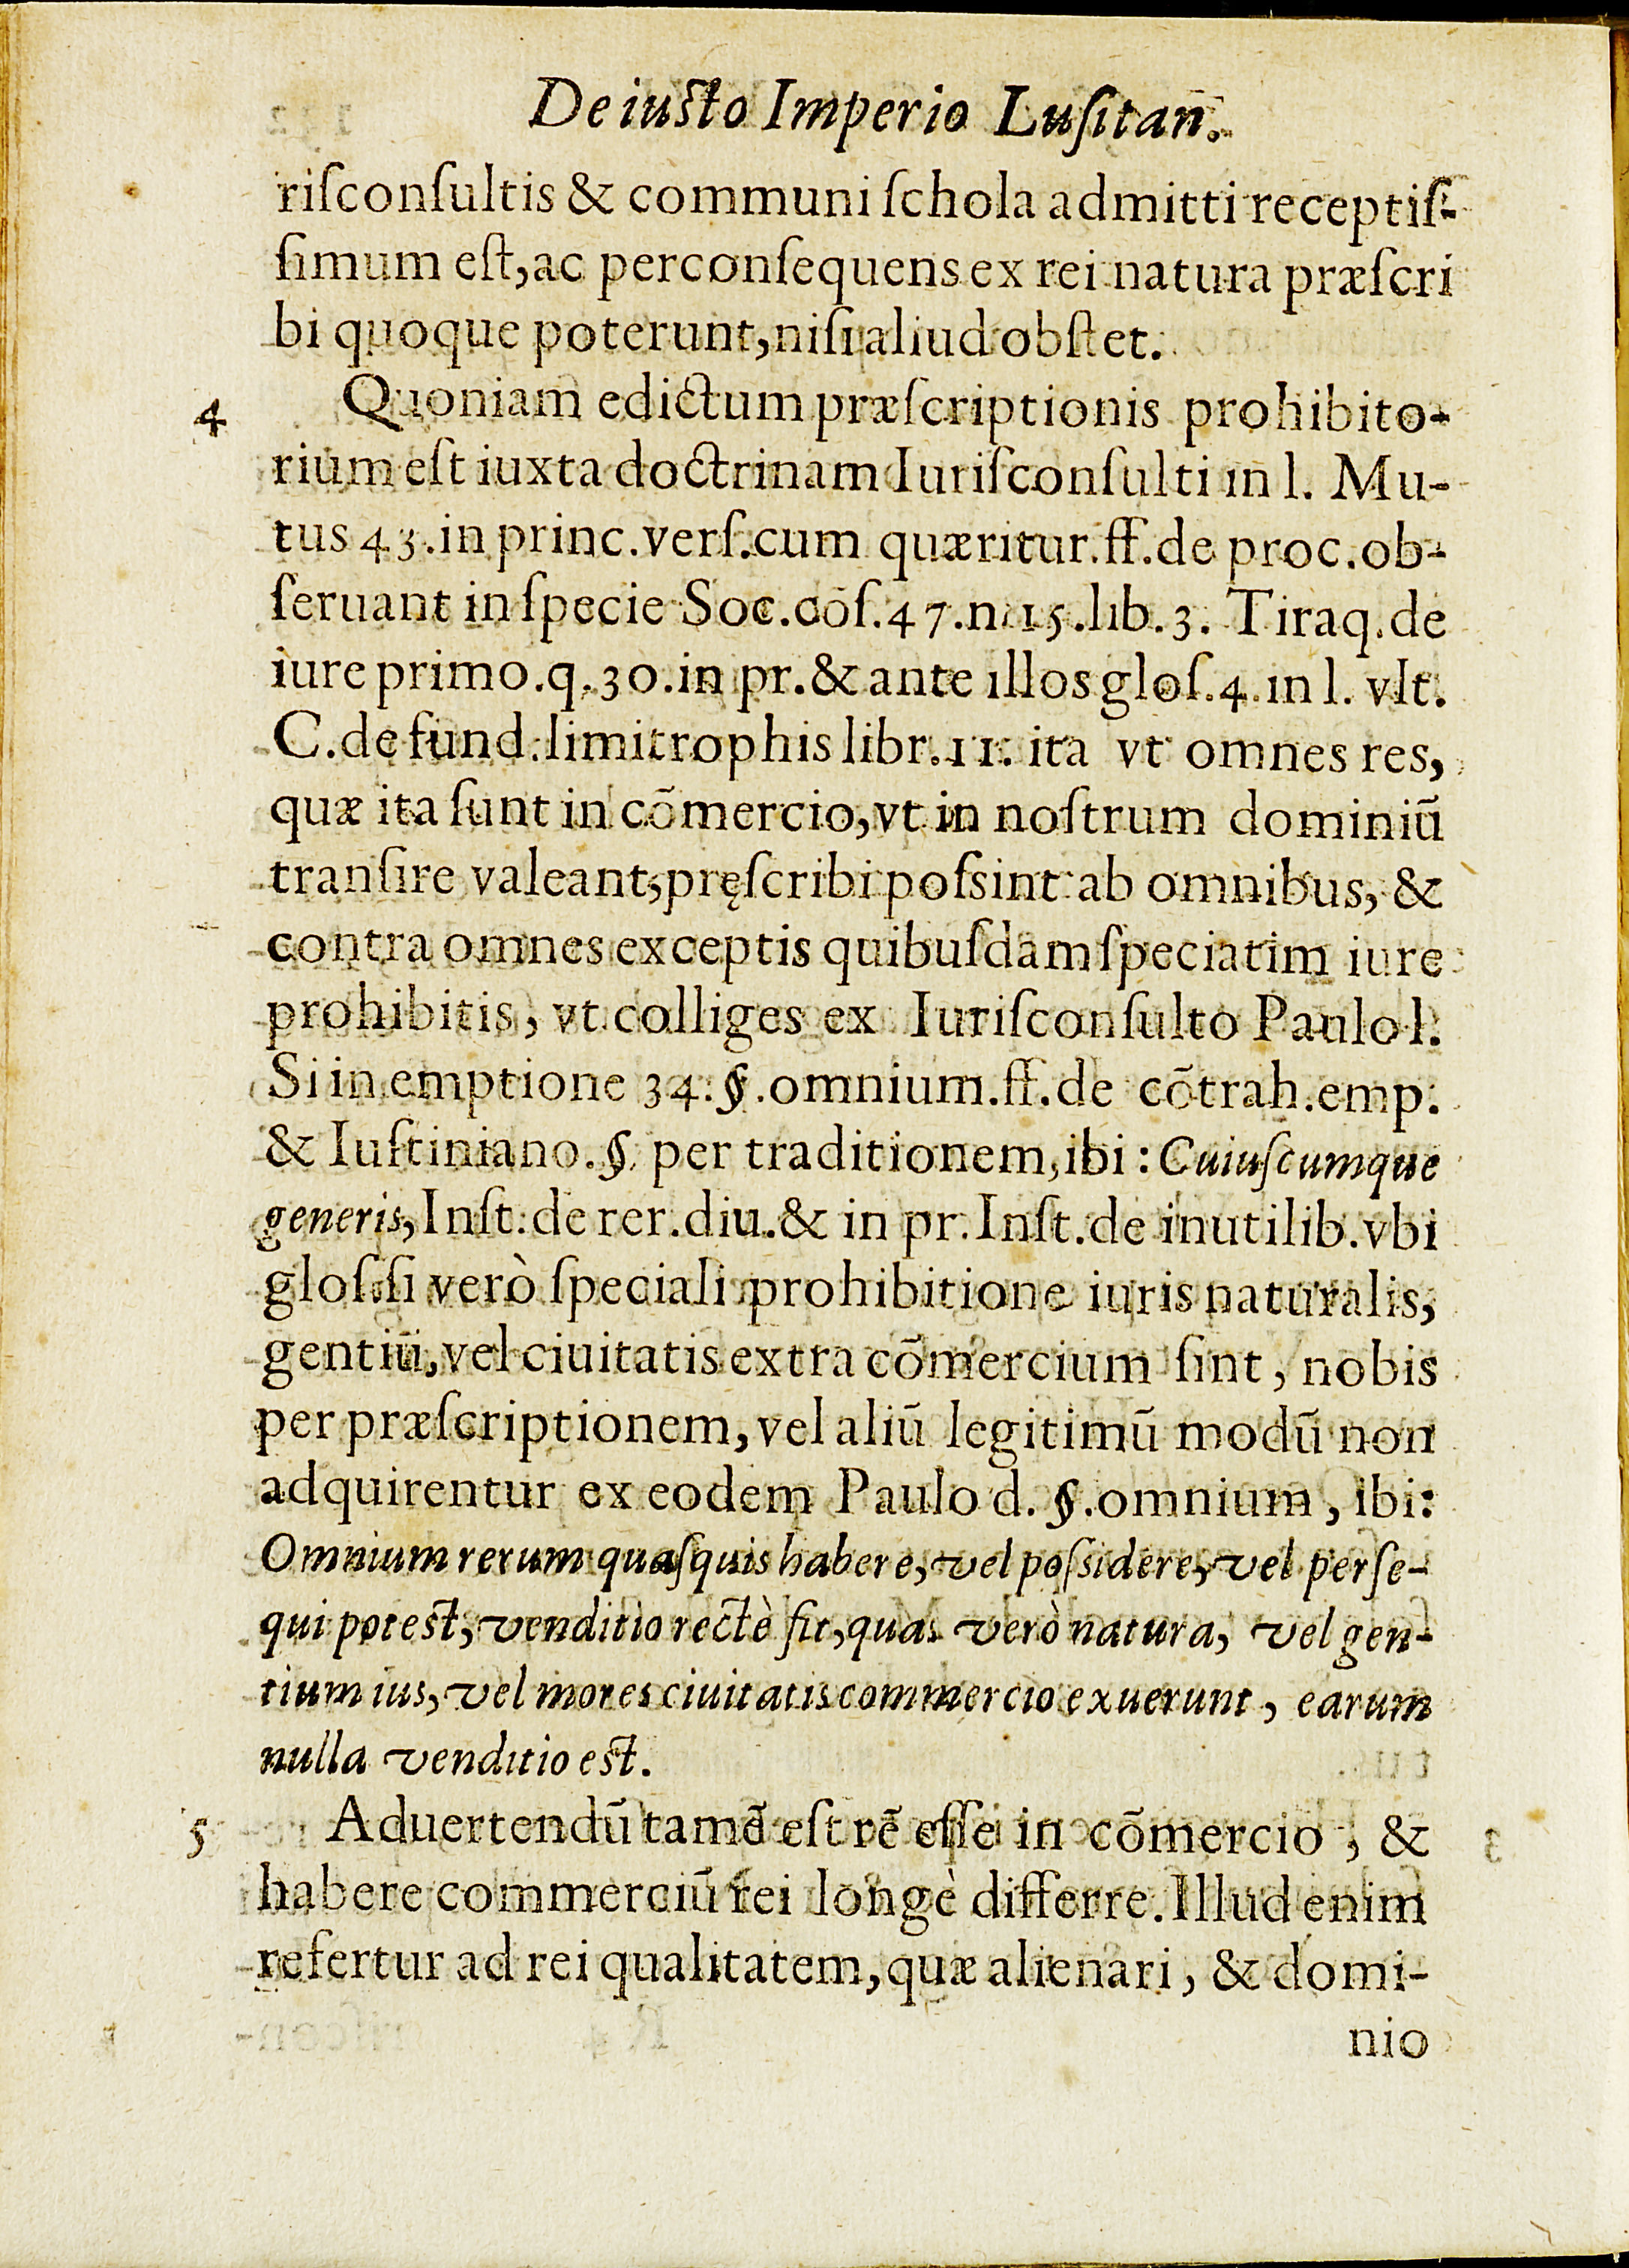 De iusto Imperio Lusitan.
riſconſultis & communi ſchola admitti receptiſ-
ſimum eſt, ac perconſequens ex rei natura præſcri
bi quoque poterunt, niſi aliud obſtet.
4 Quoniam edictum præſcriptionis prohibito-
rium eſt iuxta doctrinam Iuriſconſulti in l. Mu-
tus 43. in princ. verſ. cum quæritur. ff. de proc. ob-
ſeruant in ſpecie Soc. cōſ. 47. n. 15. lib. 3. Tiraq. de
iure primo. q. 30. in pr. & ante illos gloſ. 4. in l. vlt.
C. de fund. limitrophis libr. 11. ita vt omnes res,
quæ ita ſunt in cōmercio, vt in noſtrum dominiū
tranſire valeant, pręſcribi poſsint ab omnibus, &
contra omnes exceptis quibuſdam ſpeciatim iure
prohibitis, vt colliges ex Iuriſconſulto Paulo l.
Si in emptione 34. §. omnium. ff. de cōtrah. emp.
& Iuſtiniano. §. per traditionem, ibi: Cuiuſcumque
generis, Inſt. de rer. diu. & in pr. Inſt. de inutilib. vbi
gloſ. ſi verò ſpeciali prohibitione iuris naturalis,
gentiū, vel ciuitatis extra cōmercium ſint, nobis
per præſcriptionem, vel aliū legitimū modū non
adquirentur ex eodem Paulo d. §. omnium, ibi:
Omnium rerum quas quis habere, vel poſsidere, vel perſe-
qui poteſt, venditio rectè fit, quas verò natura, vel gen-
tium ius, vel mores ciuitatis commercio exuerunt, earum
nulla venditio eſt.
5 Aduertendū tamē eſt rē eſſe in cōmercio, &
habere commerciū rei longè differre. Illud enim
refertur ad rei qualitatem, quæ alienari, & domi-
nio